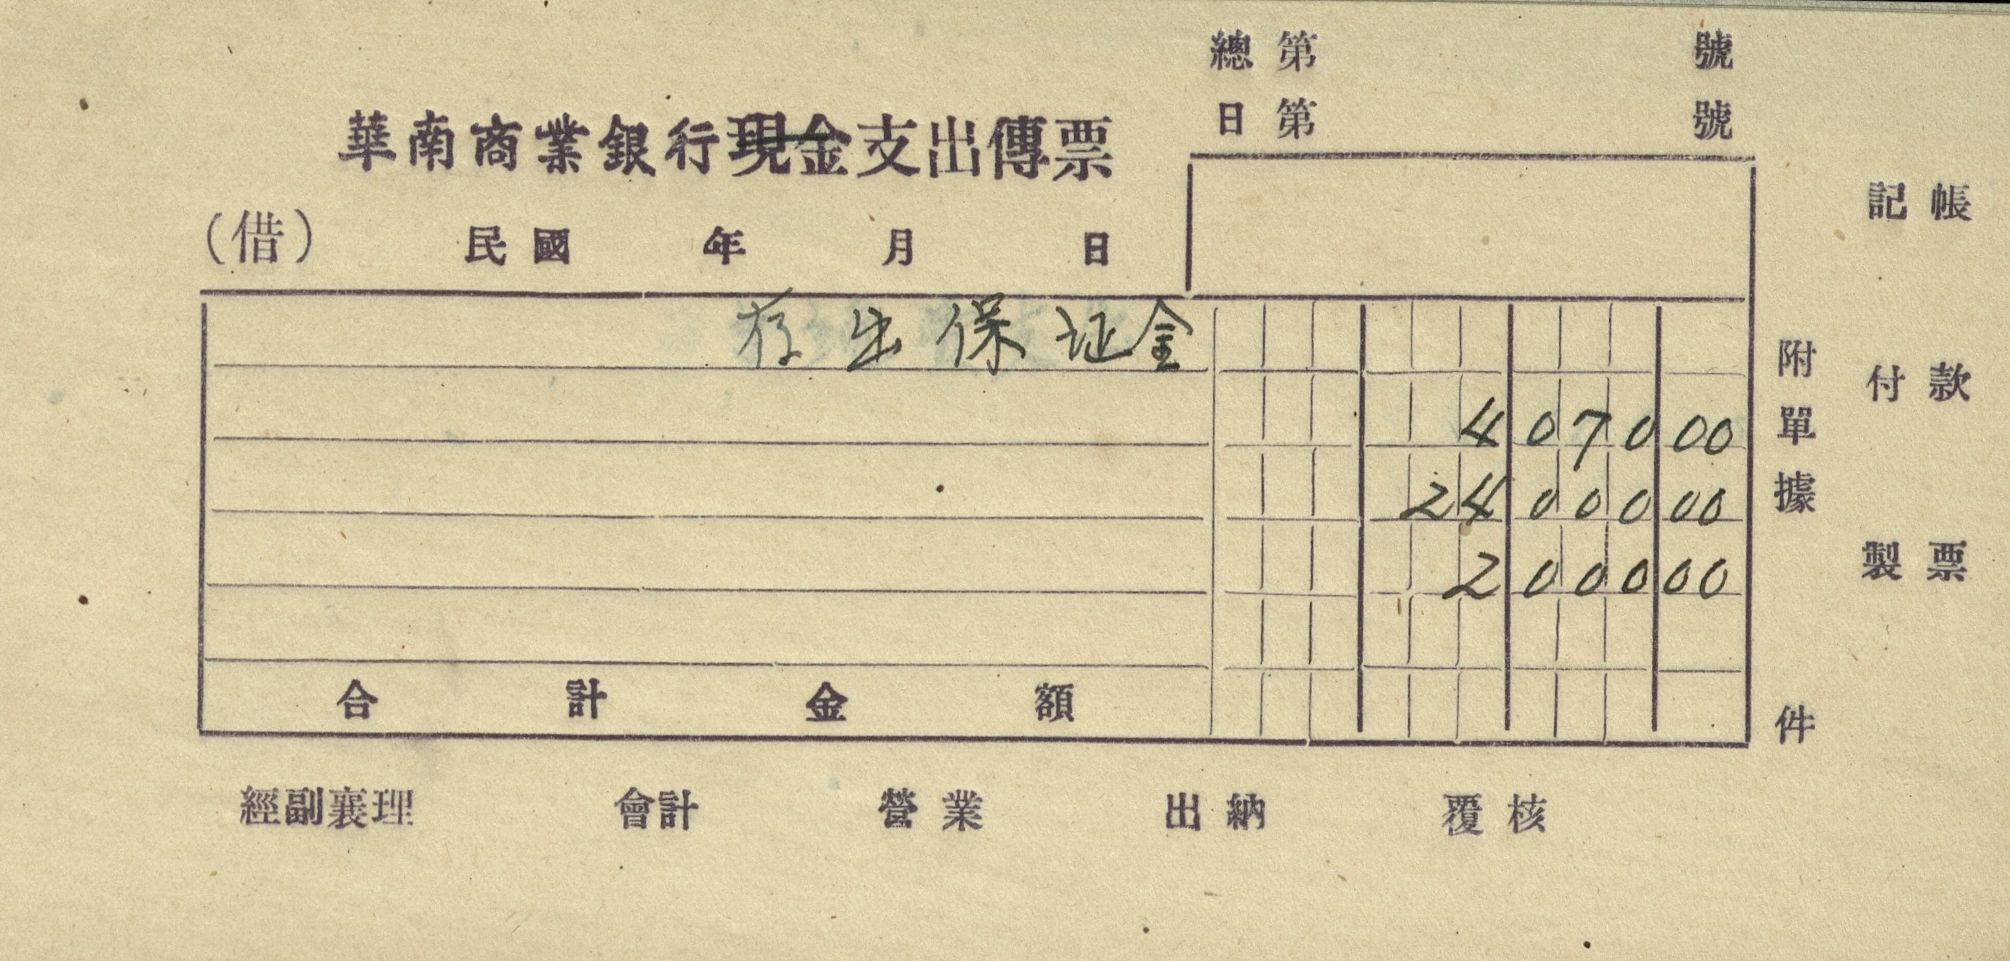 總第 號
日第 號
華南商業銀行現金支出傳票
(借) 民國 年 月 日
記帳
存出保证金
附單據 件
付款
4 070 00
24 000 00
2 000 00
製票
合計金額
經副襄理 會計 營業 出納 覆核